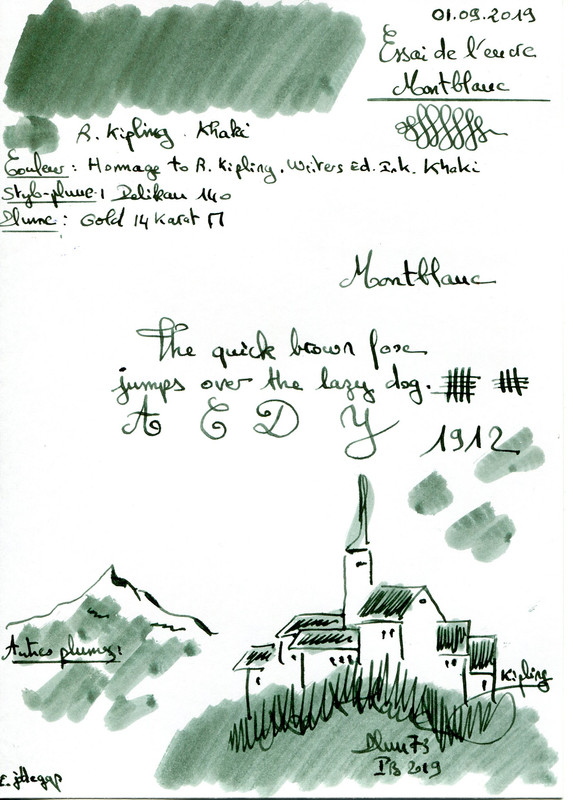 01.09.2019
Essai de l'encre
Montblanc
R. Kipling. Khaki
Couleur : Hommage to R. Kipling. Writers Ed. Ink. Khaki
Stylo-plume : Pelikan 140
Plume : Gold 14 Karat M
Montblanc
The quick brown fox
jumps over the lazy dog.
A E D Y
1912
Autres plumes :
Kipling
2019